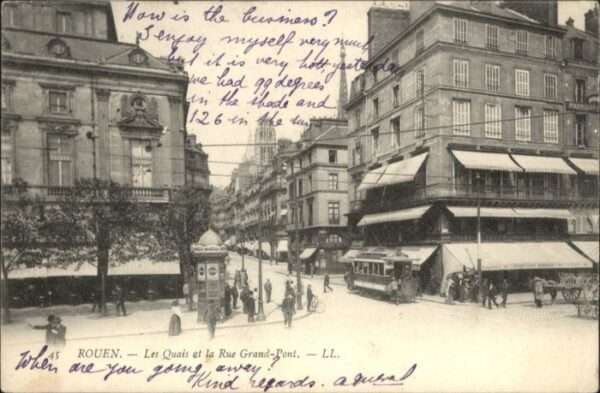 How is the business?
I enjoy myself very much
but it is very hot yesterday
we had 99 degrees
in the shade and
126 in the sun
45 ROUEN. — Les Quais et la Rue Grand-Pont. — LL.
When are you going away?
Kind regards.